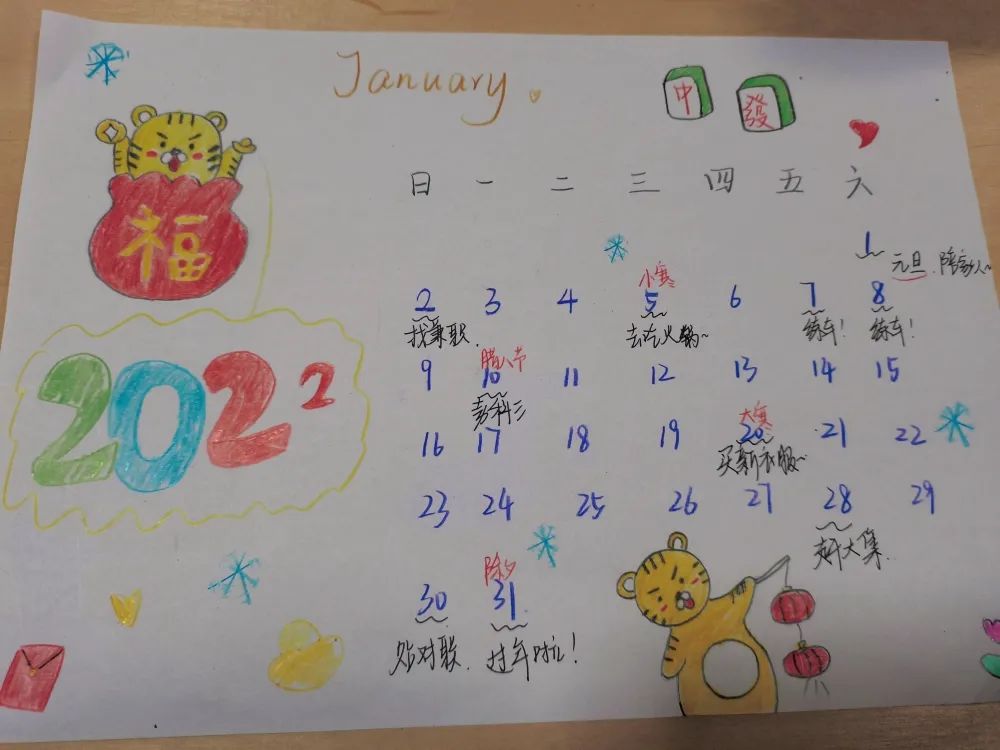 January
中 發
福
日 一 二 三 四 五 六
1 元旦.陪家人~
小寒
2 3 4 5 6 7 8
找兼职. 去吃火锅~ 练车! 练车!
腊八节
9 10 11 12 13 14 15
考科三
大寒
16 17 18 19 20 21 22
买新衣服~
23 24 25 26 27 28 29
赶大集.
除夕
30 31
贴对联. 过年啦!
2022